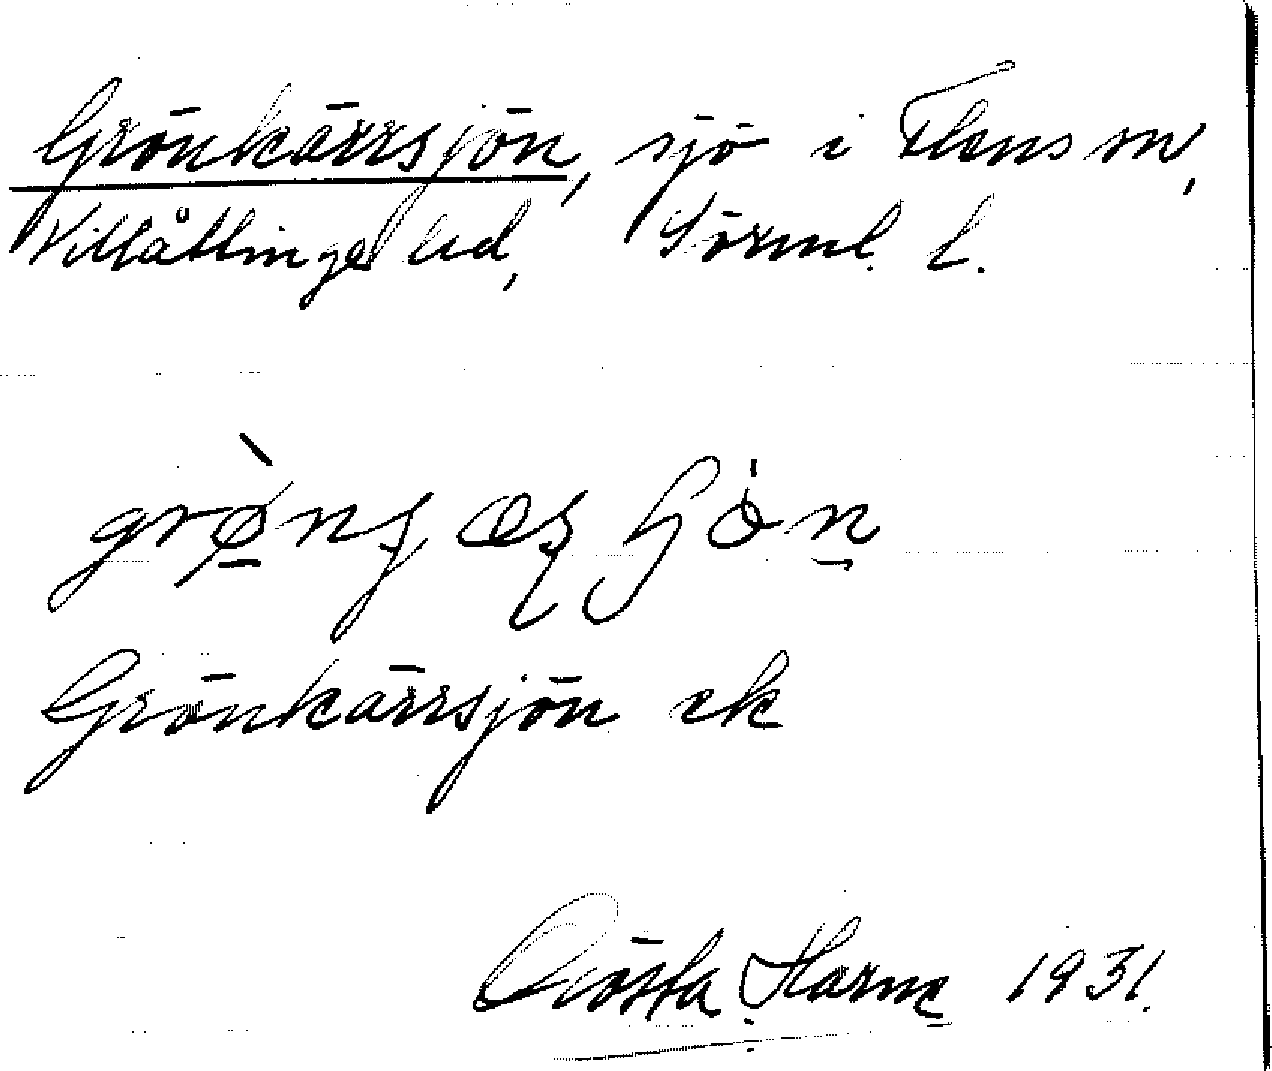 Grönkärrsjön, sjö i Flens sn,
Villåttinge hd, Sörml. l.
Grönkärrsjön ek
Gösta Harne 1931.